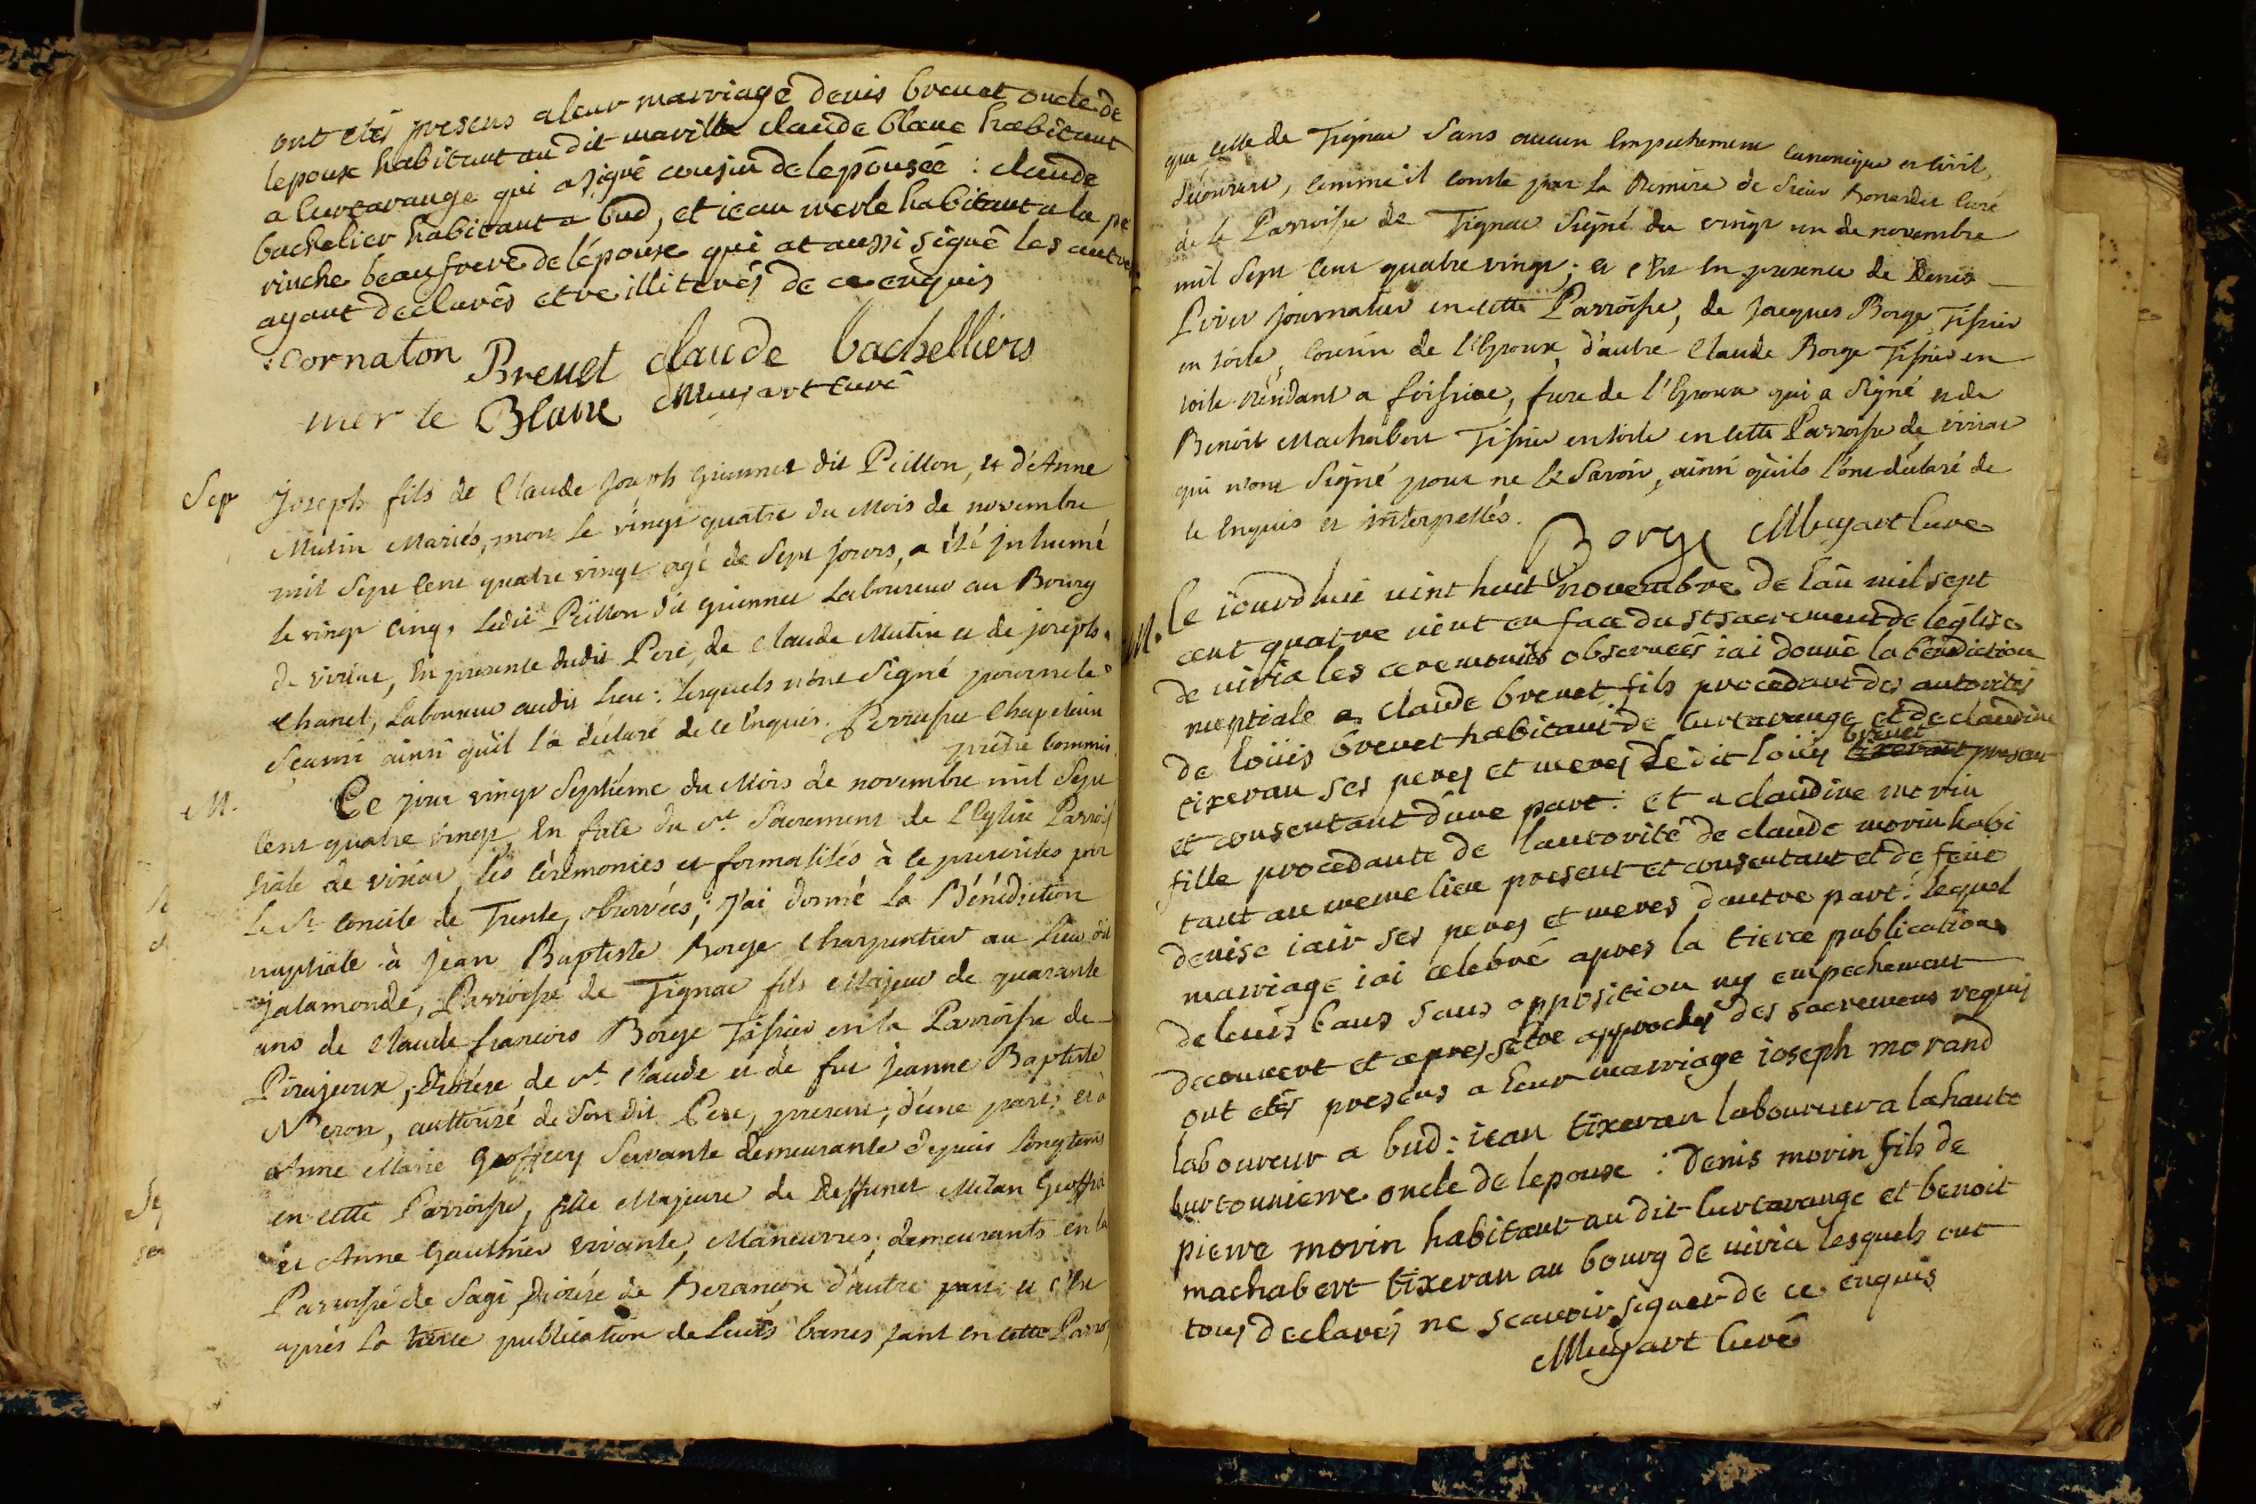 ont etés presens a leur marriage denis breuet oncle de
lepoux habitant au dit mavilla claude blanc habitant
a curtarange qui a signé cousin de lepousée : claude
bachelier habitant a bud, et iean merle habitant a la pe
rinche beaufrere de lépouse qui at aussi signé les autres
ayant declarés etre illiterés de ce enquis
cornaton Breuet claude bachelliers
mer le Blanc Muyart curé
Sep Joseph fils de Claude Joseph Griennet dit Peillon, et d'Anne
Mutin Mariés, mort le vingt quatre du Mois de novembre
mil Sept Cent quatre vingt agé de Sept Jours, a été inhumé
le vingt Cinq, Ledit Peillon dit Griennet Laboureur au Bourg
de viriat, En presence dudit Peré, de Claude Mutin et de joseph
Chanel, Laboureur audit Lieu : Lesquels n'ont Signé pour ne le
Scavoir ainsi qu'il l'a déclaré de ce Enquis. Perruquet Chapelain
prêtre Commis.
M. Ce jour vingt Septiéme du Mois de novembre mil Sept
Cent quatre vingt, En face du St. Sacrement de L'Eglise Parrois
siale de viriat, les cérémonies et formalités à ce prescrites par
Le St. Concile de Trente, observées ; J'ai donné la Bénédiction
nuptiale à Jean Baptiste Borge Charpentier au Lieu dit
Jalamonde, Parroisse de Tignat fils Majeur de quarante
ans de Claude françois Borge Tissier en la Parroisse de
Pirajoux, Diocése de St. Claude et de fue Jeanne Baptiste
Neron, authorisé de Son dit Pere, present, d'une part, et à
Anne Marie Geoffrey Servante demeurante depuis Longtems
en cette Parroisse, fille Majeure de Deffunct Milan Geoffrey
et Anne Gauthier vivante, Maneuvres, demeurants en la
Parroisse de Sagi, Diocése de Bezançon d'autre part, et c'Est
aprés la tierce publication de Leurs bancs, tant En cette Parrois
que celle de Tignat Sans aucun Empechement canonique et civil,
découvert, comme il conste par la Remise de Sieur Bonardet Curé
de la Parroisse de Tignat Signé du vingt un de novembre
mil Sept Cent quatre vingt ; et c'Est En presence de Denis
Pirir journalier en cette Parroisse, de Jacques Borge Tissier
en toile, Cousin de l'Epoux, d'autre Claude Borge Tissier en
toile résidant a foissiat, frere de l'Epoux qui a Signé et de
Benoit Machabert Tissier en toile en cette Parroisse de viriat
qui n'ont Signé pour ne le Savoir, ainsi qu'ils l'ont déclaré de
ce Enquis et interpellés.
Borge Muyart Curé
M. Ce iourd hui uint huit novembre de lan mil sept
cent quatre uint en face du st sacrement de leglise
de uiria les ceremonies obseruées iai donné la benediction
nuptiale a claude breuet fils procedant des autorités
de loüis breuet habitant de curtarange et de claudine
tixeran ses peres et meres Le dit loüis breuet tixerant present
et consentant d'une part : et a claudine morin
fille procedante de lautorité de claude morin habi
tant au meme lieu present et consentant et de feue
denise iair ses peres et meres dautre part : lequel
marriage iai celebré apres la tierce publication
de leurs bans sans opposition ny empechement
decouvert et apres setre approchés des sacremens requis
ont etés presens a leur marriage ioseph morand
laboureur a bud : iean tixeran laboureur a la haute
burtouniere oncle de lepoux : denis morin fils de
pierre morin habitant au dit curtarange et benoit
machabert tixeran au bourg de uiria lesquels ont
tous declarés ne scavoir signer de ce enquis
Muyart Curé
Se